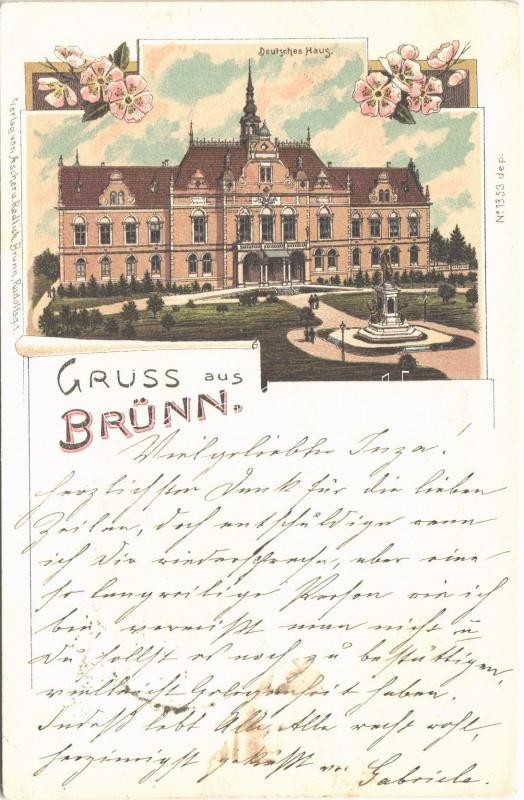 Deutsches Haus.
Verlag von Ascher u. Redlich, Brünn, Rudolfsg. 1.
Nº 1353 dep.
GRUSS aus
BRÜNN.
Vielgeliebte Inza!
herzlichsten Dank für die lieben
Zeilen, doch entschuldige wenn
ich Dir wiederspreche, aber eine
so langweilige Person wie ich
bin, vermißt man nicht u
Du sollst es noch zu bestättigen,
vielleicht Gelegenheit haben.
Indeß lebt Alle, Alle recht wohl,
herzinnigst geküßt von Gabriele.